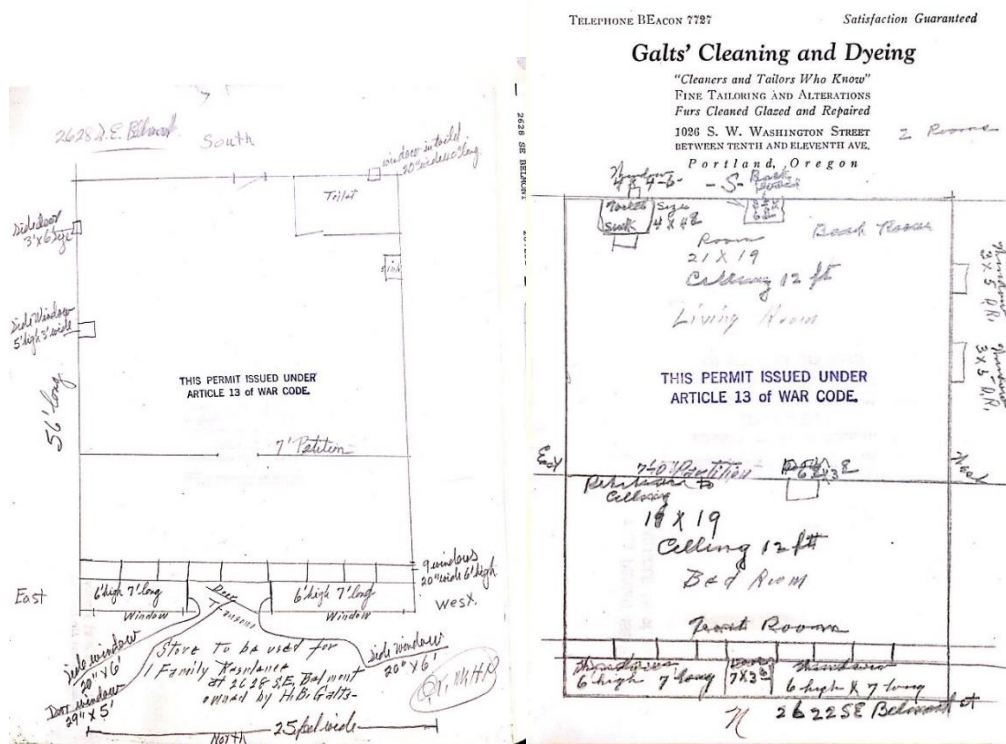 2628 S.E. Belmont
South
window in toilet
20" wide 40" long
Toilet
Side door
3' x 6'
Sink
Side Window
5' high 3' wide
THIS PERMIT ISSUED UNDER
ARTICLE 13 of WAR CODE.
56' long
7' Petition
9 windows
20" wide 6' high
East
6' high 7' long
Door
Transom
6' high 7' long
West
Window
Window
Side window
20" x 6'
Door window
29" x 5'
Store To be used for
1 Family Residence
at 2628 S.E. Belmont
owned by H.B. Galts-
Side Window
20" x 6'
25 feet wide
North
2628 SE BELMONT
TELEPHONE BEACON 7727
Satisfaction Guaranteed
Galts' Cleaning and Dyeing
"Cleaners and Tailors Who Know"
FINE TAILORING AND ALTERATIONS
Furs Cleaned Glazed and Repaired
1026 S. W. WASHINGTON STREET
BETWEEN TENTH AND ELEVENTH AVE.
Portland, Oregon
2 Rooms
Window
- S -
Back
Toilet
Sink
Size
Room
21 X 19
Ceiling 12 ft
Living Room
Back Room
Window
3 x 5
Window
3 x 5
THIS PERMIT ISSUED UNDER
ARTICLE 13 of WAR CODE.
Partition
Ceiling
19 X 19
Celling 12 ft
Bed Room
Front Room
Windows
6 high 7 long
Windows
6 high x 7 long
N
2622 SE Belmont st